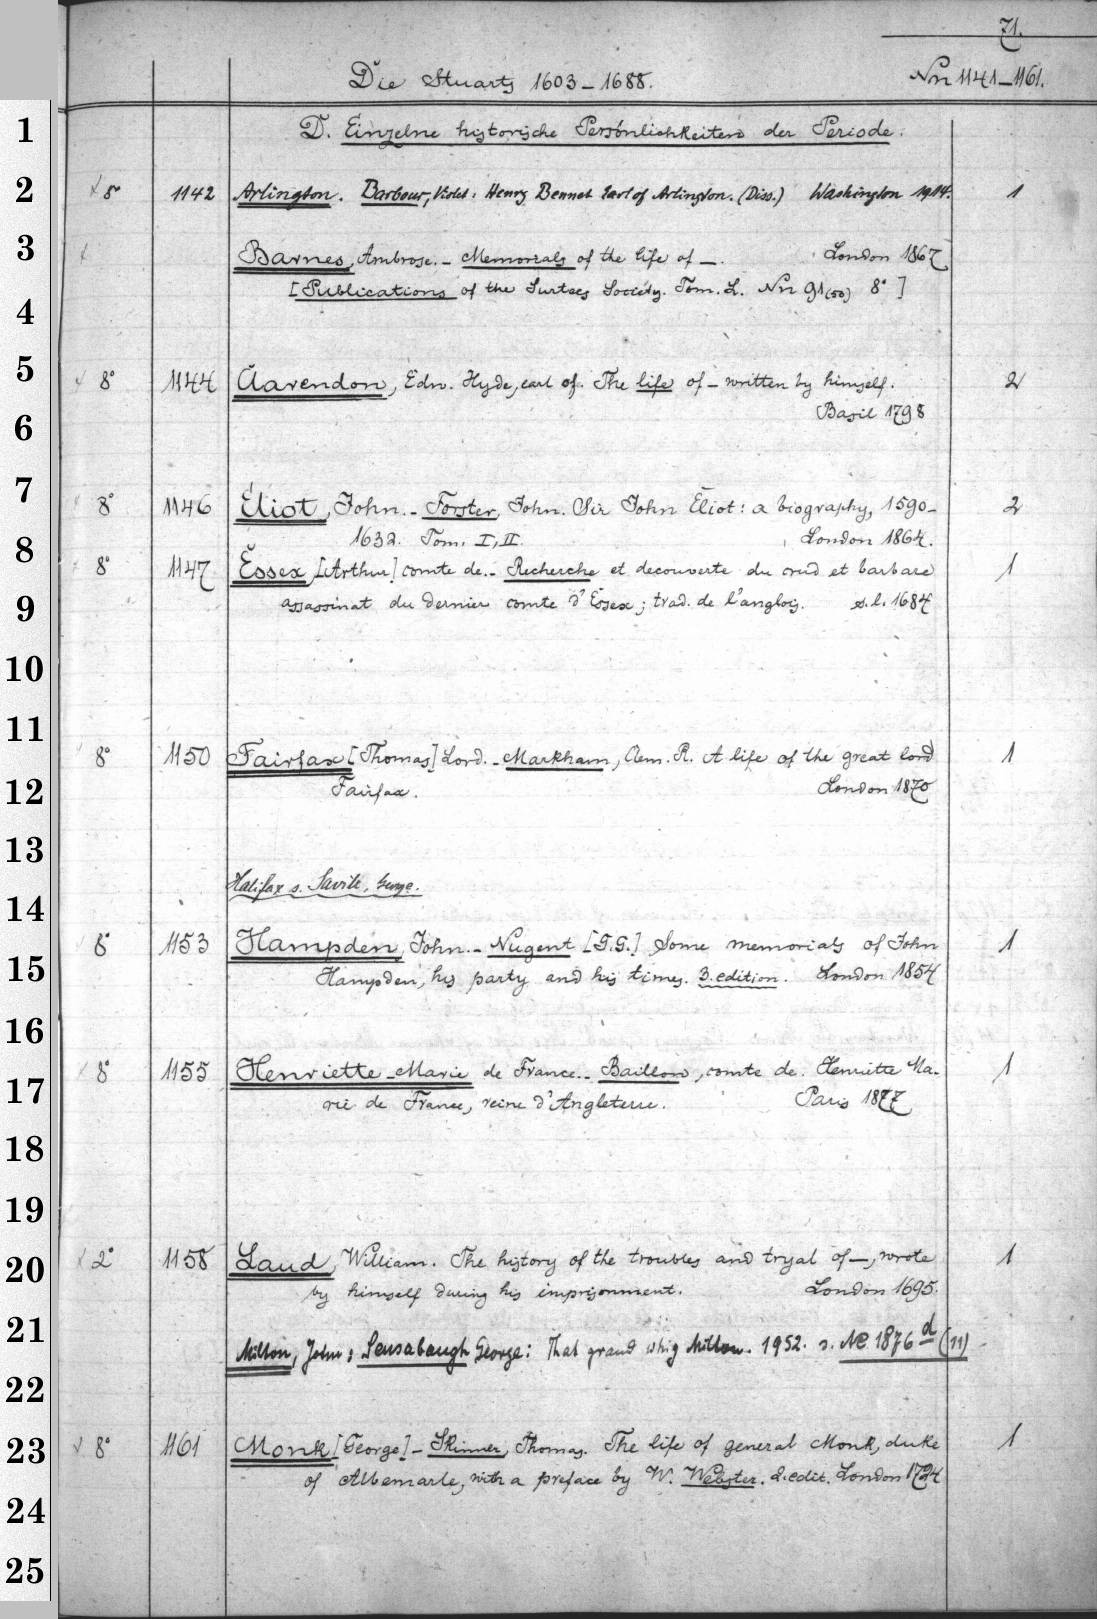 71.
Die Stuarts 1603-1688. Nn 1141-1161.
1 D. Einzelne historische Persönlichkeiten der Periode.
2 8° 1142 Arlington. Barbour, Violet: Henry Bennet Earl of Arlington. (Diss.) Washington 1914. 1
3 Barnes, Ambrose. - Memorials of the life of —. London 1867
4 [Publications of the Surtees Society. Tom. L. Nn 91(50) 8°]
5 8° 1144 Clarendon, Edw. Hyde, earl of. The life of — written by himself. 2
6 Basil 1798
7 8° 1146 Eliot, John. - Forster, John. Sir John Eliot: a biography, 1590-
8 1632. Tom. I, II. London 1864. 2
8° 1147 Essex, [Arthur] comte de. - Recherche et decouverte du crud et barbare 1
9 assassinat du dernier comte d'Essex; trad. de l'anglois. s.l. 1684
10
11 8° 1150 Fairfax [Thomas] Lord. - Markham, Clem. R. A life of the great lord 1
12 Fairfax. London 1870
13
Halifax s. Savile, George.
14
8° 1153 Hampden, John. - Nugent [G.G.] Some memorials of John 1
15 Hampden, his party and his times. 3. edition. London 1854
16
8° 1155 Henriette-Marie de France. - Baillon, comte de. Henriette Ma- 1
17 rie de France, reine d'Angleterre. Paris 1877
18
19
20 2° 1158 Laud, William. The history of the troubles and tryal of —, wrote 1
by himself during his imprisonment. London 1695.
21 Milton, John: Sensabaugh George: That grand whig Milton. 1952. s. Ne 1876 d (11)
22
23 8° 1161 Monk [George] - Skinner, Thomas. The life of general Monk, duke 1
of Albemarle, with a preface by W. Webster. 2. edit. London 1724
24
25